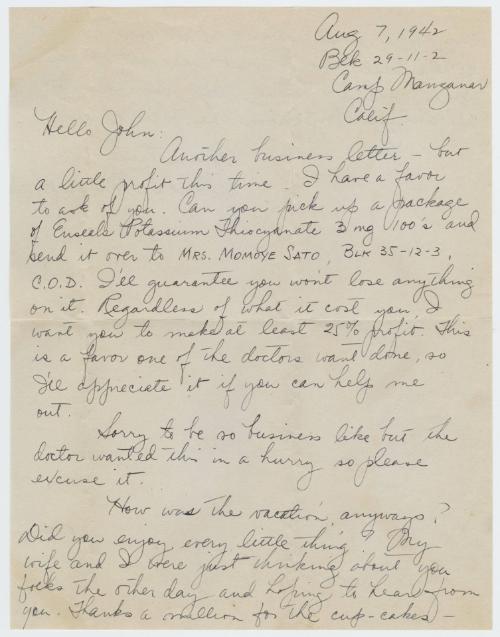 Aug 7, 1942
Blk 29-11-2
Camp Manzanar
Calif.
Hello John:
Another business letter - but
a little profit this time. I have a favor
to ask of you. Can you pick up a package
of Enseals Potassium Thiocyanate 3 mg 100's and
send it over to MRS. MOMOYE SATO, BLK 35-12-3,
C.O.D. I'll guarantee you won't lose anything
on it. Regardless of what it cost you, I
want you to make at least 25% profit. This
is a favor one of the doctors want done, so
I'll appreciate it if you can help me
out.
Sorry to be so business like but the
doctor wanted this in a hurry so please
excuse it.
How was the vacation, anyways?
Did you enjoy every little thing? My
wife and I were just thinking about you
folks the other day and hoping to hear from
you. Thanks a million for the cup-cakes -